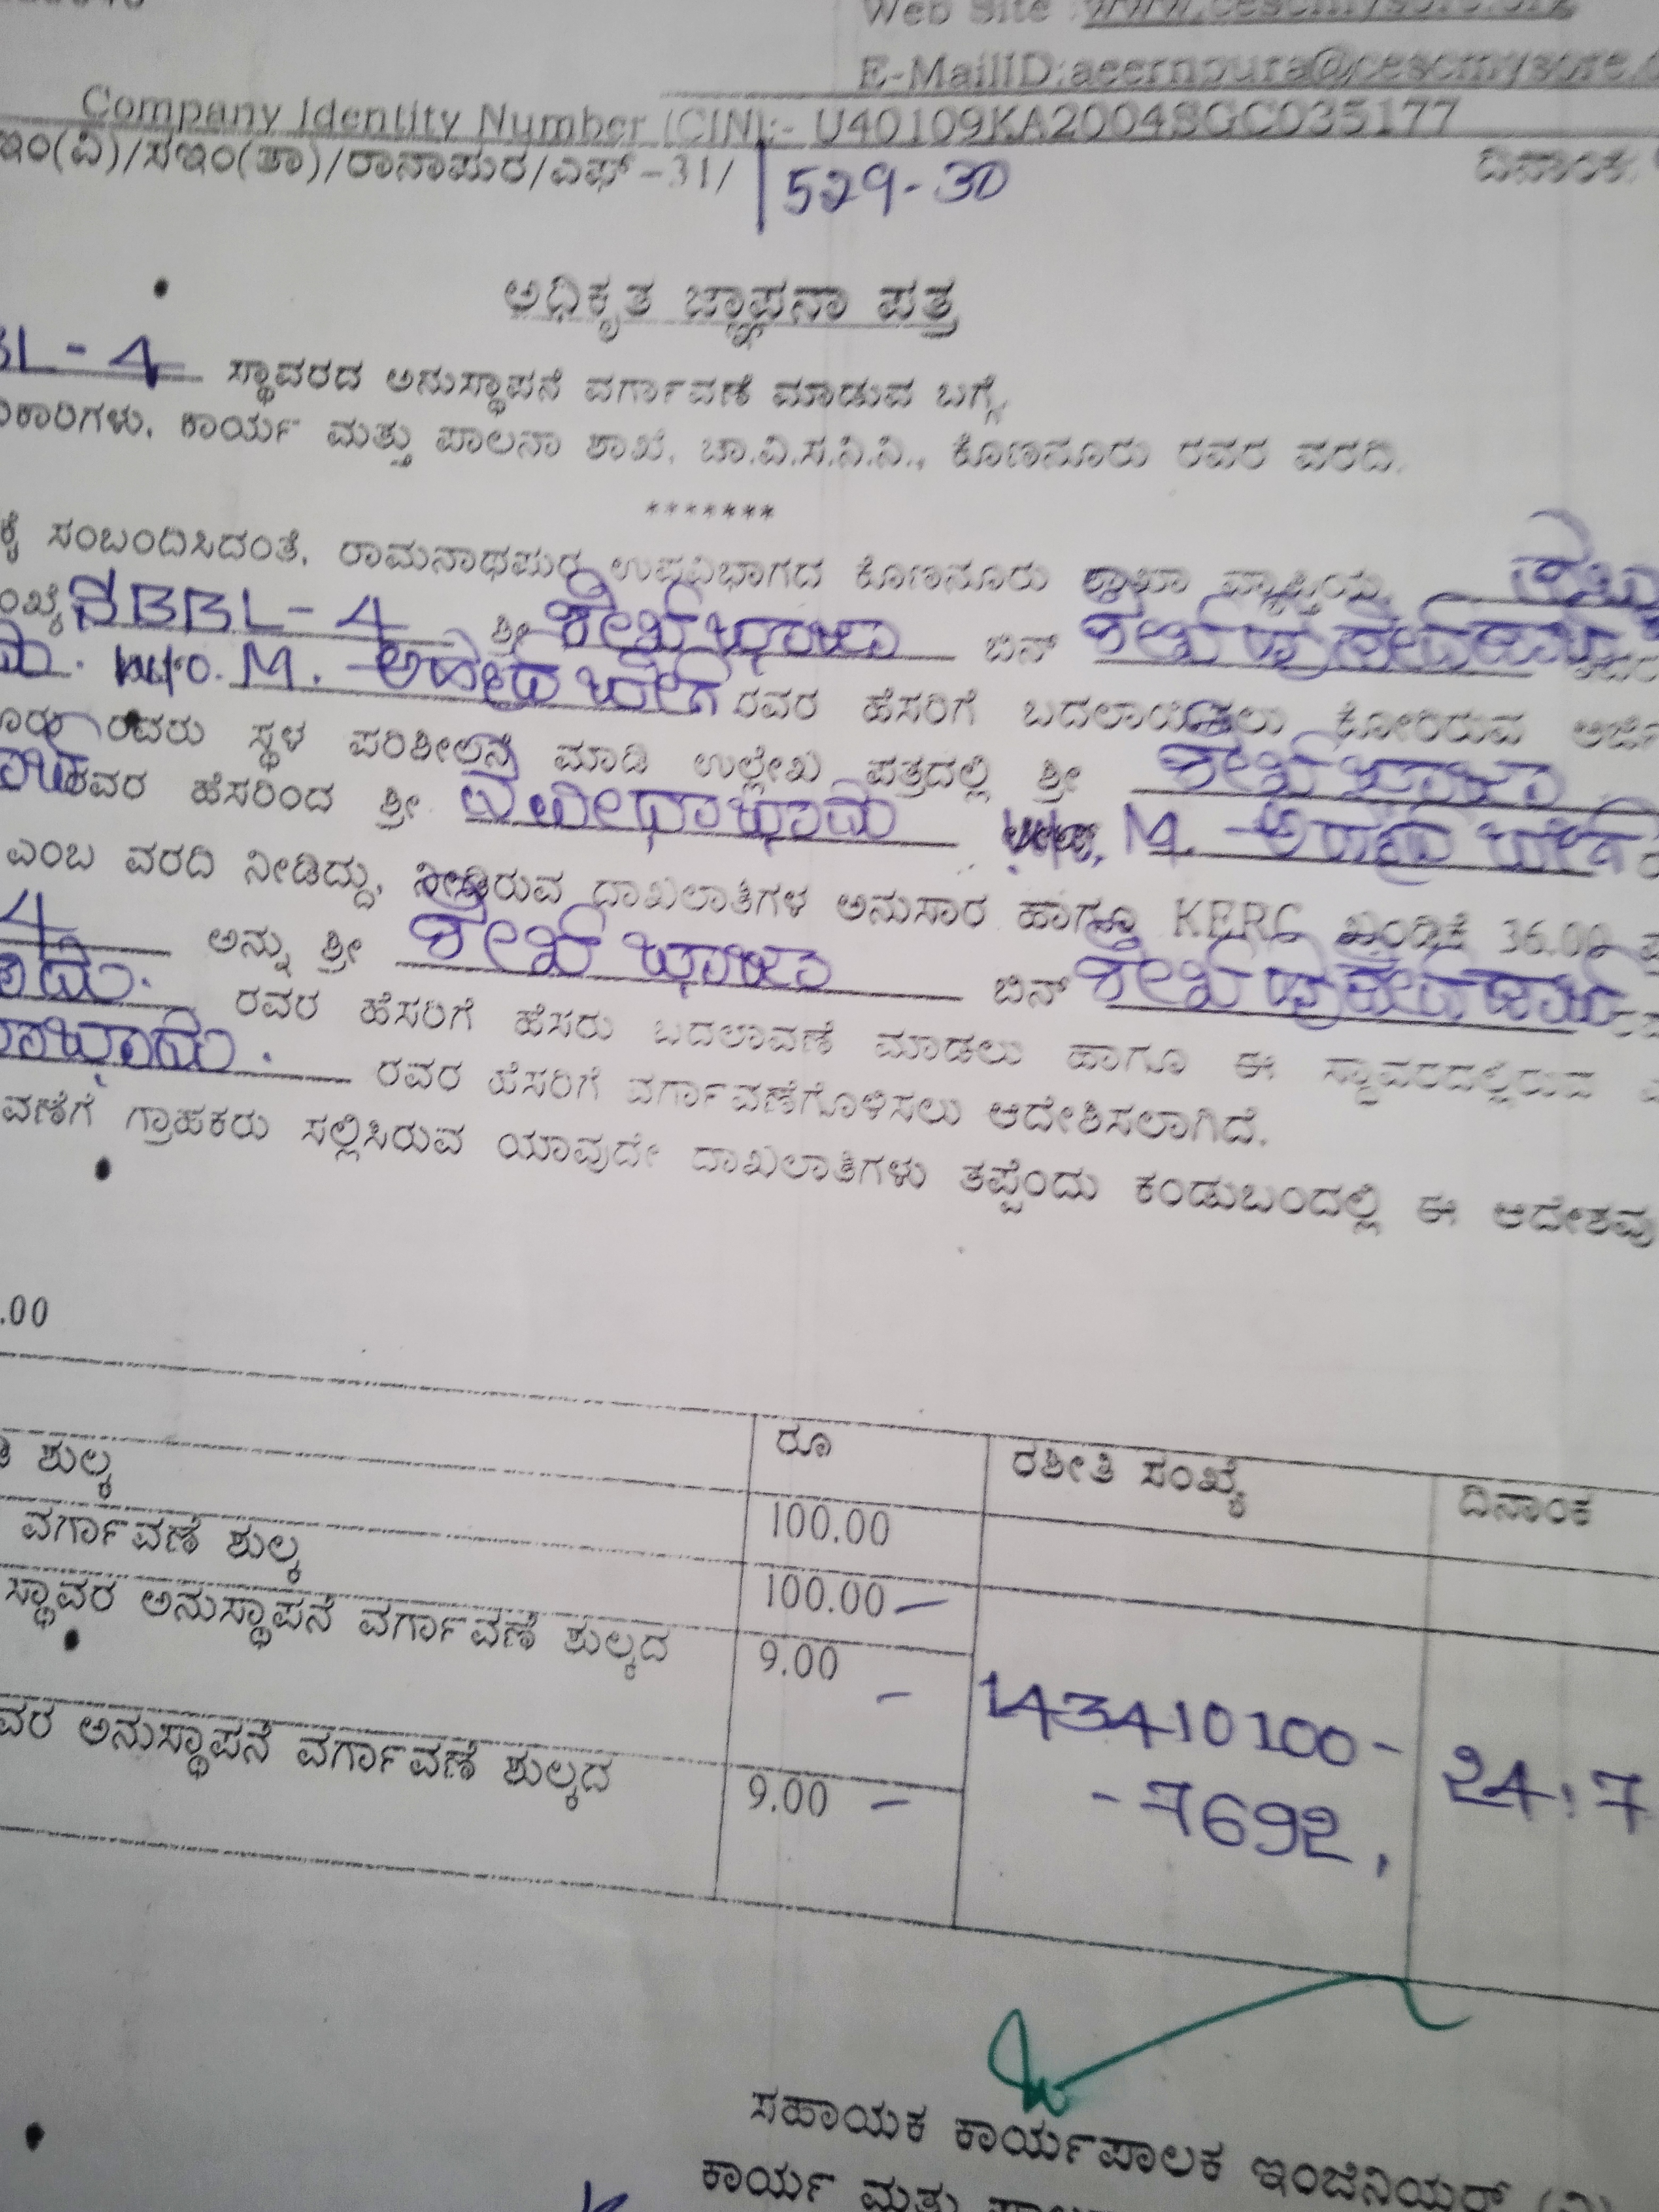 Web Site :www.cescmysore.org
E-MailID:aeernpura@cescmysore.
Company Identity Number (CIN):- U40109KA2004SGC035177
ಇಂ(ವಿ)/ಸಇಂ(ತಾ)/ರಾನಾಪುರ/ಎಫ್-31/ 1529-30
ದಿನಾಂಕ:
ಅಧಿಕೃತ ಜ್ಞಾಪನಾ ಪತ್ರ
BL-4 ಸ್ಥಾವರದ ಅನುಸ್ಥಾಪನೆ ವರ್ಗಾವಣೆ ಮಾಡುವ ಬಗ್ಗೆ.
ಕಾರಿಗಳು, ಕಾರ್ಯ ಮತ್ತು ಪಾಲನಾ ಶಾಖೆ, ಚಾ.ವಿ.ಸ.ನಿ.ನಿ., ಕೊಣನೂರು ರವರ ವರದಿ.
*******
ಕೆ ಸಂಬಂದಿಸಿದಂತೆ, ರಾಮನಾಥಪುರ ಉಪವಿಭಾಗದ ಕೊಣನೂರು ಶಾಖಾ ವ್ಯಾಪ್ತಿಯ
BBL-4 ಶ್ರೀ ಶೇಖ್ ಖಾಜಾ ಬಿನ್ ಶೇಖ್
M. ರವರ ಹೆಸರಿಗೆ ಬದಲಾಯಿಸಲು ಕೋರಿರುವ ಅರ್ಜಿ
ರವರು ಸ್ಥಳ ಪರಿಶೀಲನೆ ಮಾಡಿ ಉಲ್ಲೇಖ ಪತ್ರದಲ್ಲಿ ಶ್ರೀ ಶೇಖ್ ಖಾಜಾ
ರವರ ಹೆಸರಿಂದ ಶ್ರೀ. M.
ಎಂಬ ವರದಿ ನೀಡಿದ್ದು, ನೀಡಿರುವ ದಾಖಲಾತಿಗಳ ಅನುಸಾರ ಹಾಗೂ KERC ಖಂಡಿಕೆ 36.00
4 ಅನ್ನು ಶ್ರೀ ಶೇಖ್ ಖಾಜಾ ಬಿನ್ ಶೇಖ್
ರವರ ಹೆಸರಿಗೆ ಹೆಸರು ಬದಲಾವಣೆ ಮಾಡಲು ಹಾಗೂ ಈ ಸ್ಥಾವರದಲ್ಲಿರುವ
ರವರ ಹೆಸರಿಗೆ ವರ್ಗಾವಣೆಗೊಳಿಸಲು ಆದೇಶಿಸಲಾಗಿದೆ.
ವಣೆಗೆ ಗ್ರಾಹಕರು ಸಲ್ಲಿಸಿರುವ ಯಾವುದೇ ದಾಖಲಾತಿಗಳು ತಪ್ಪೆಂದು ಕಂಡುಬಂದಲ್ಲಿ ಈ ಆದೇಶವು
.00
ರೂ ರಶೀತಿ ಸಂಖ್ಯೆ ದಿನಾಂಕ
ಶುಲ್ಕ 100.00
ವರ್ಗಾವಣೆ ಶುಲ್ಕ 100.00
ಸ್ಥಾವರ ಅನುಸ್ಥಾಪನೆ ವರ್ಗಾವಣೆ ಶುಲ್ಕದ 9.00
143410100-
-7692, 24.7
ವರ ಅನುಸ್ಥಾಪನೆ ವರ್ಗಾವಣೆ ಶುಲ್ಕದ 9.00
ಸಹಾಯಕ ಕಾರ್ಯಪಾಲಕ ಇಂಜಿನಿಯರ್
ಕಾರ್ಯ ಮತ್ತು